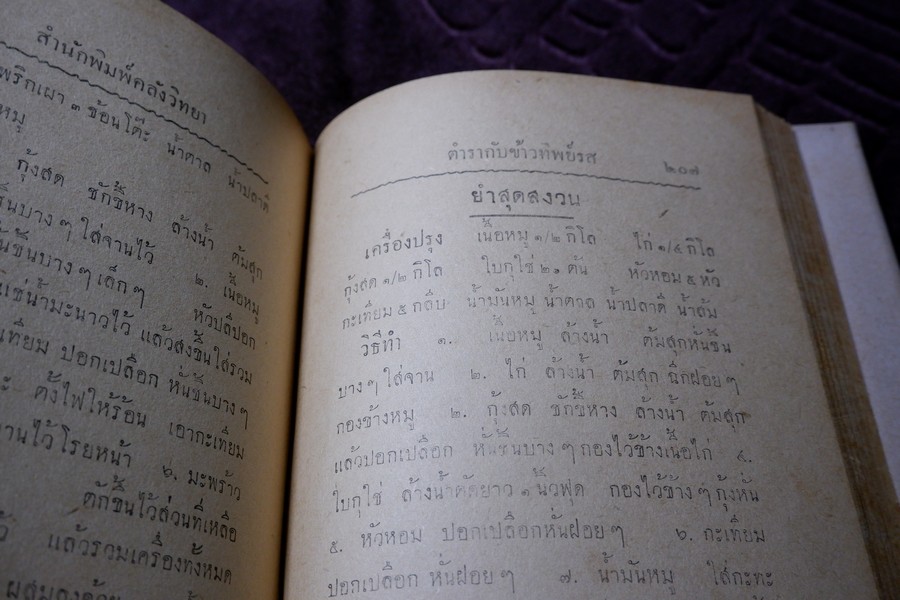 สำนักพิมพ์คลังวิทยา
พริกเผา ๓ ช้อนโต๊ะ น้ำตาล น้ำปลาดี
หมู
กุ้งสด ชักขี้หาง ล้างน้ำ ต้มสุก
ชิ้นบางๆ ใส่จานไว้ ๒. เนื้อหมู
หั่นชิ้นบางๆ เล็กๆ หัวปลีปอก
แช่น้ำมะนาวไว้ แล้วสงขึ้นใส่รวม
กระเทียม ปอกเปลือก หั่นชิ้นบางๆ
ตั้งไฟให้ร้อน เอากะเทียม
จานไว้โรยหน้า ๖. มะพร้าว
ตักขึ้นไว้ส่วนที่เหลือ
แล้วรวมเครื่องทั้งหมด
ผสมลงด้วย
ตำรากับข้าวทิพย์รส ๒๐๗
ยำสุดสงวน
เครื่องปรุง เนื้อหมู ๑/๒ กิโล ไก่ ๑/๔ กิโล
กุ้งสด ๑/๒ กิโล ใบกุใช่ ๒๑ ต้น หัวหอม ๕ หัว
กะเทียม ๕ กลีบ น้ำมันหมู น้ำตาล น้ำปลาดี น้ำส้ม
วิธีทำ ๑. เนื้อหมู ล้างน้ำ ต้มสุกหั่นชิ้น
บางๆ ใส่จาน ๒. ไก่ ล้างน้ำ ต้มสุก ฉีกฝอยๆ
กองข้างหมู ๒. กุ้งสด ชักขี้หาง ล้างน้ำ ต้มสุก
แล้วปอกเปลือก หั่นชิ้นบางๆ กองไว้ข้างเนื้อไก่ ๔.
ใบกุใช่ ล้างน้ำตัดยาว ๑ นิ้วฟุต กองไว้ข้างๆ กุ้งหั่น
๕. หัวหอม ปอกเปลือกหั่นฝอยๆ ๖. กะเทียม
ปอกเปลือก หั่นฝอยๆ ๗. น้ำมันหมู ใส่กะทะ